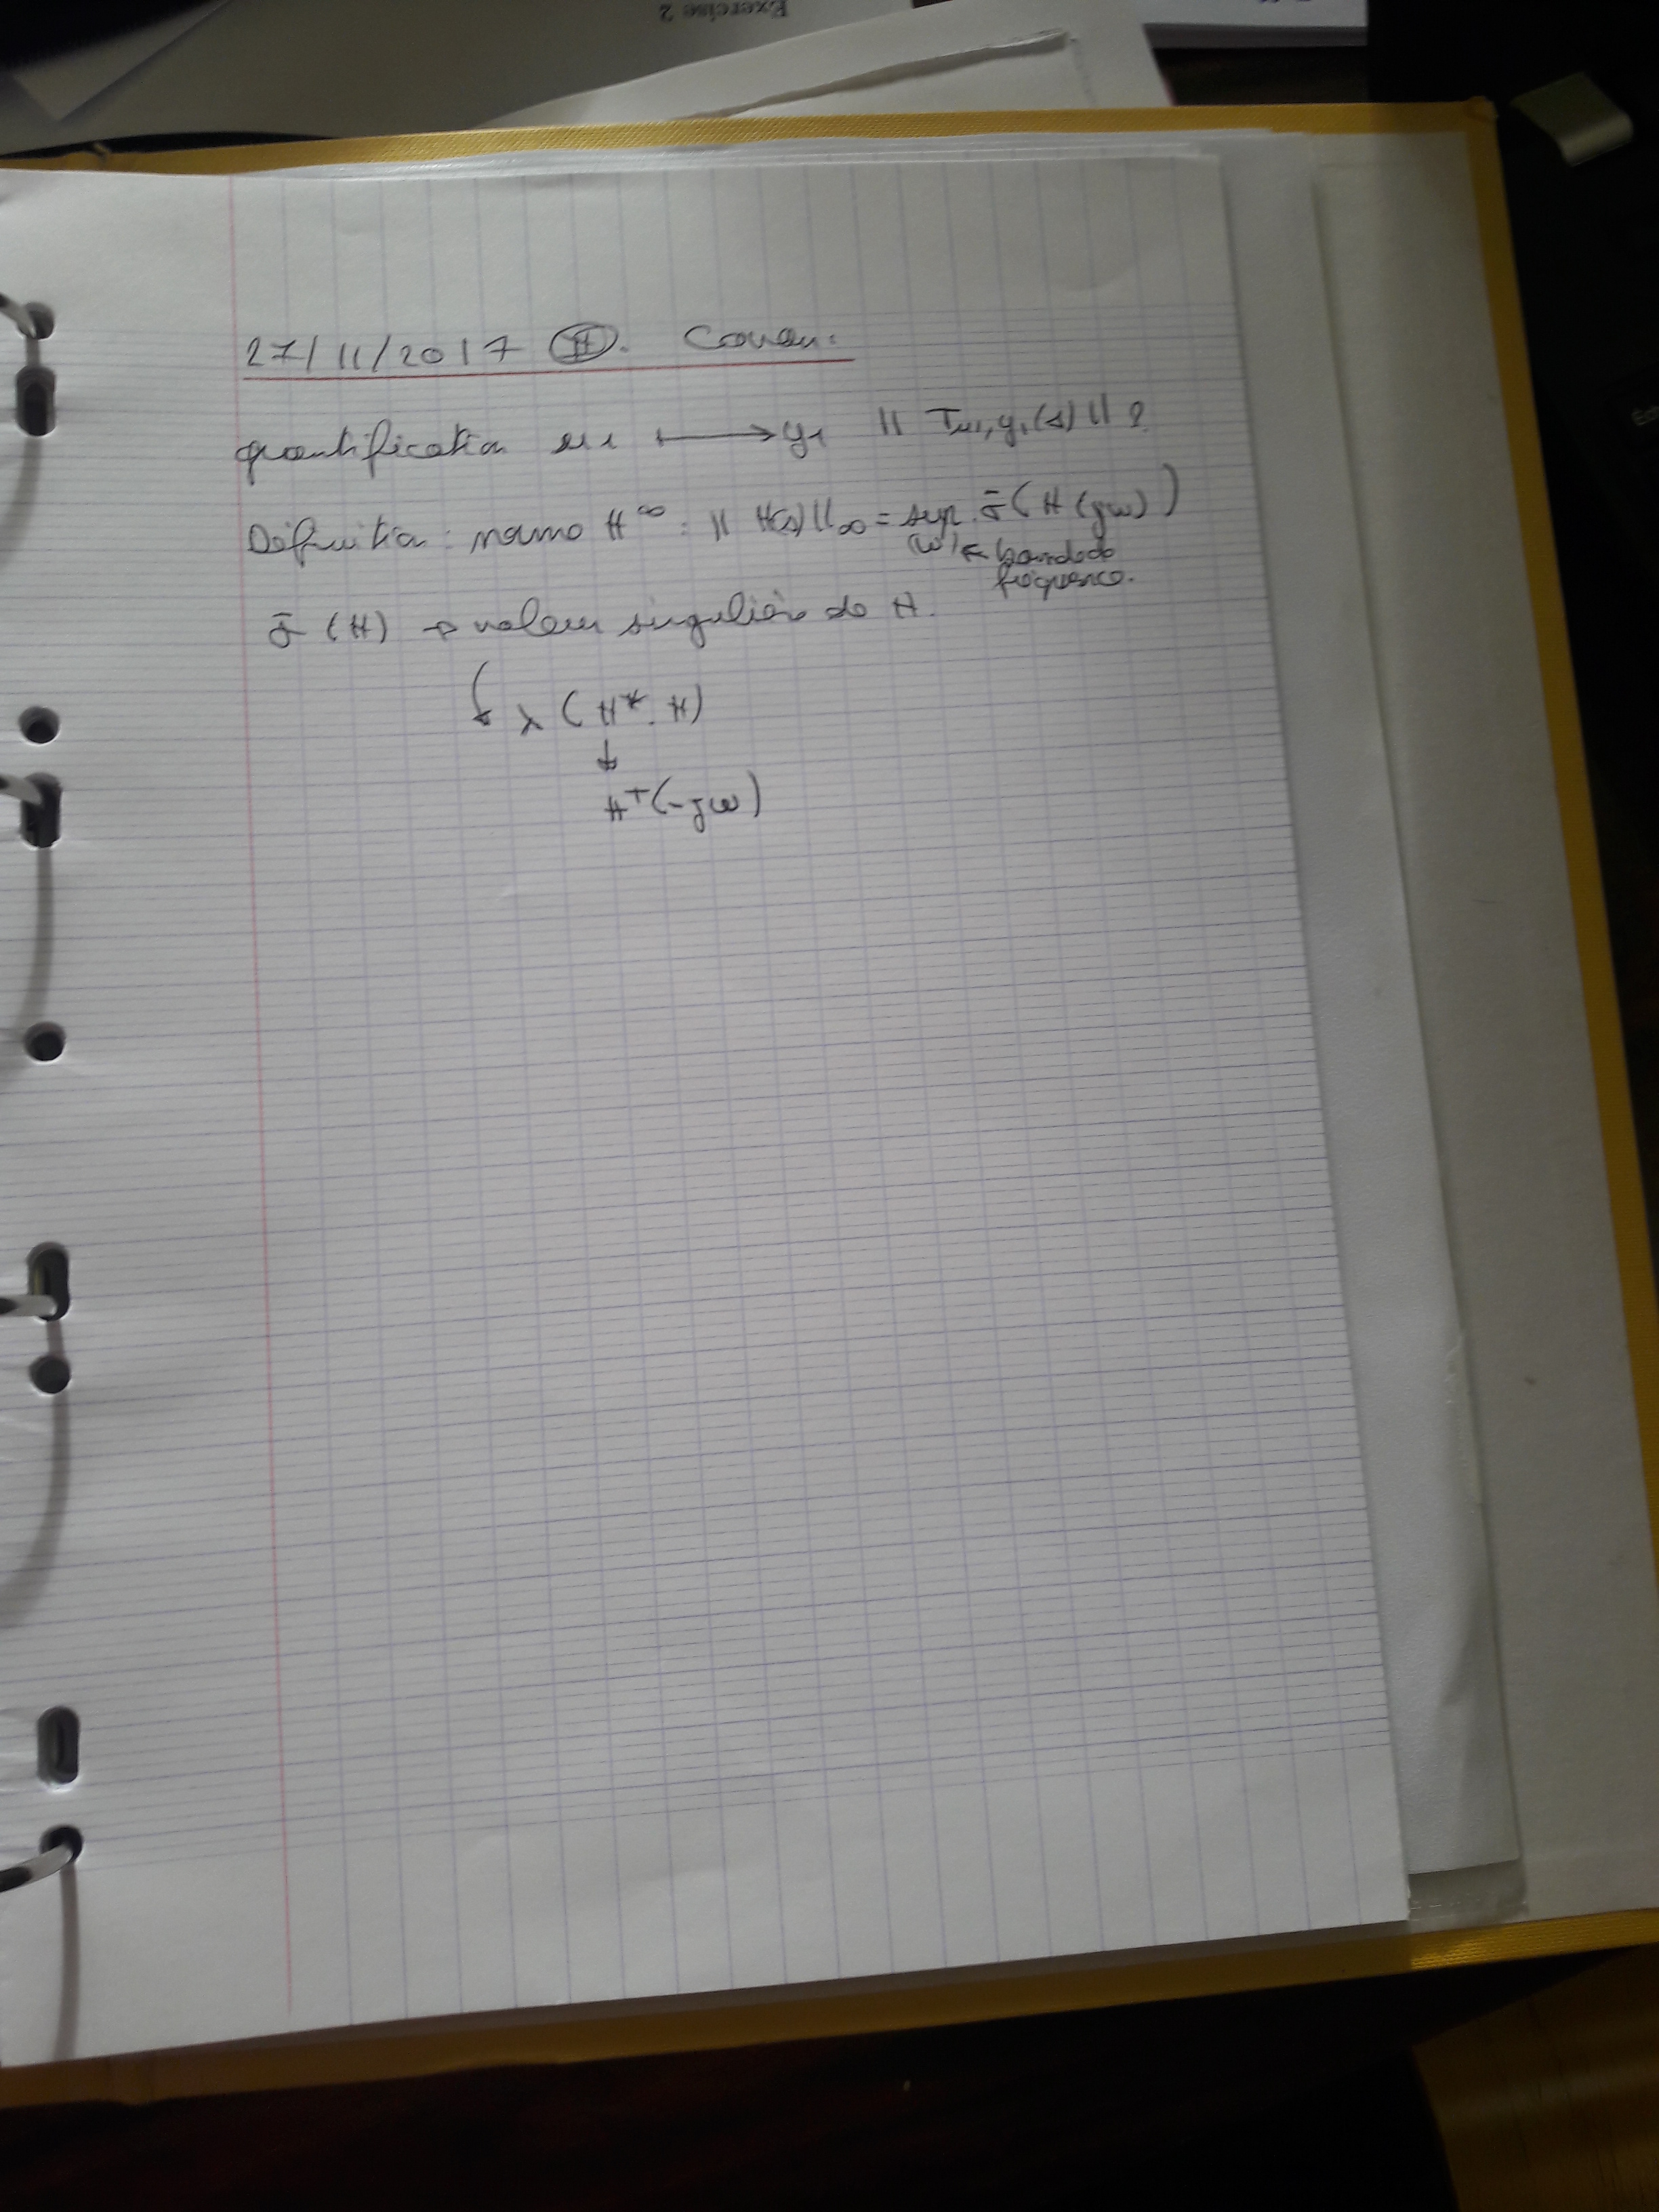 Exercise 2
27/11/2017 II.
quantification u1 ⟼ y1 || Tu1,y1(s) || ?
Définition : norme H∞ : || H(s) ||∞ = sup. σ̄ ( H (jω) )
(ω) ← bande de
fréquence.
σ̄ (H) → valeur singulière de H.
↳ λ ( H*. H)
↓
H^T(-jω)